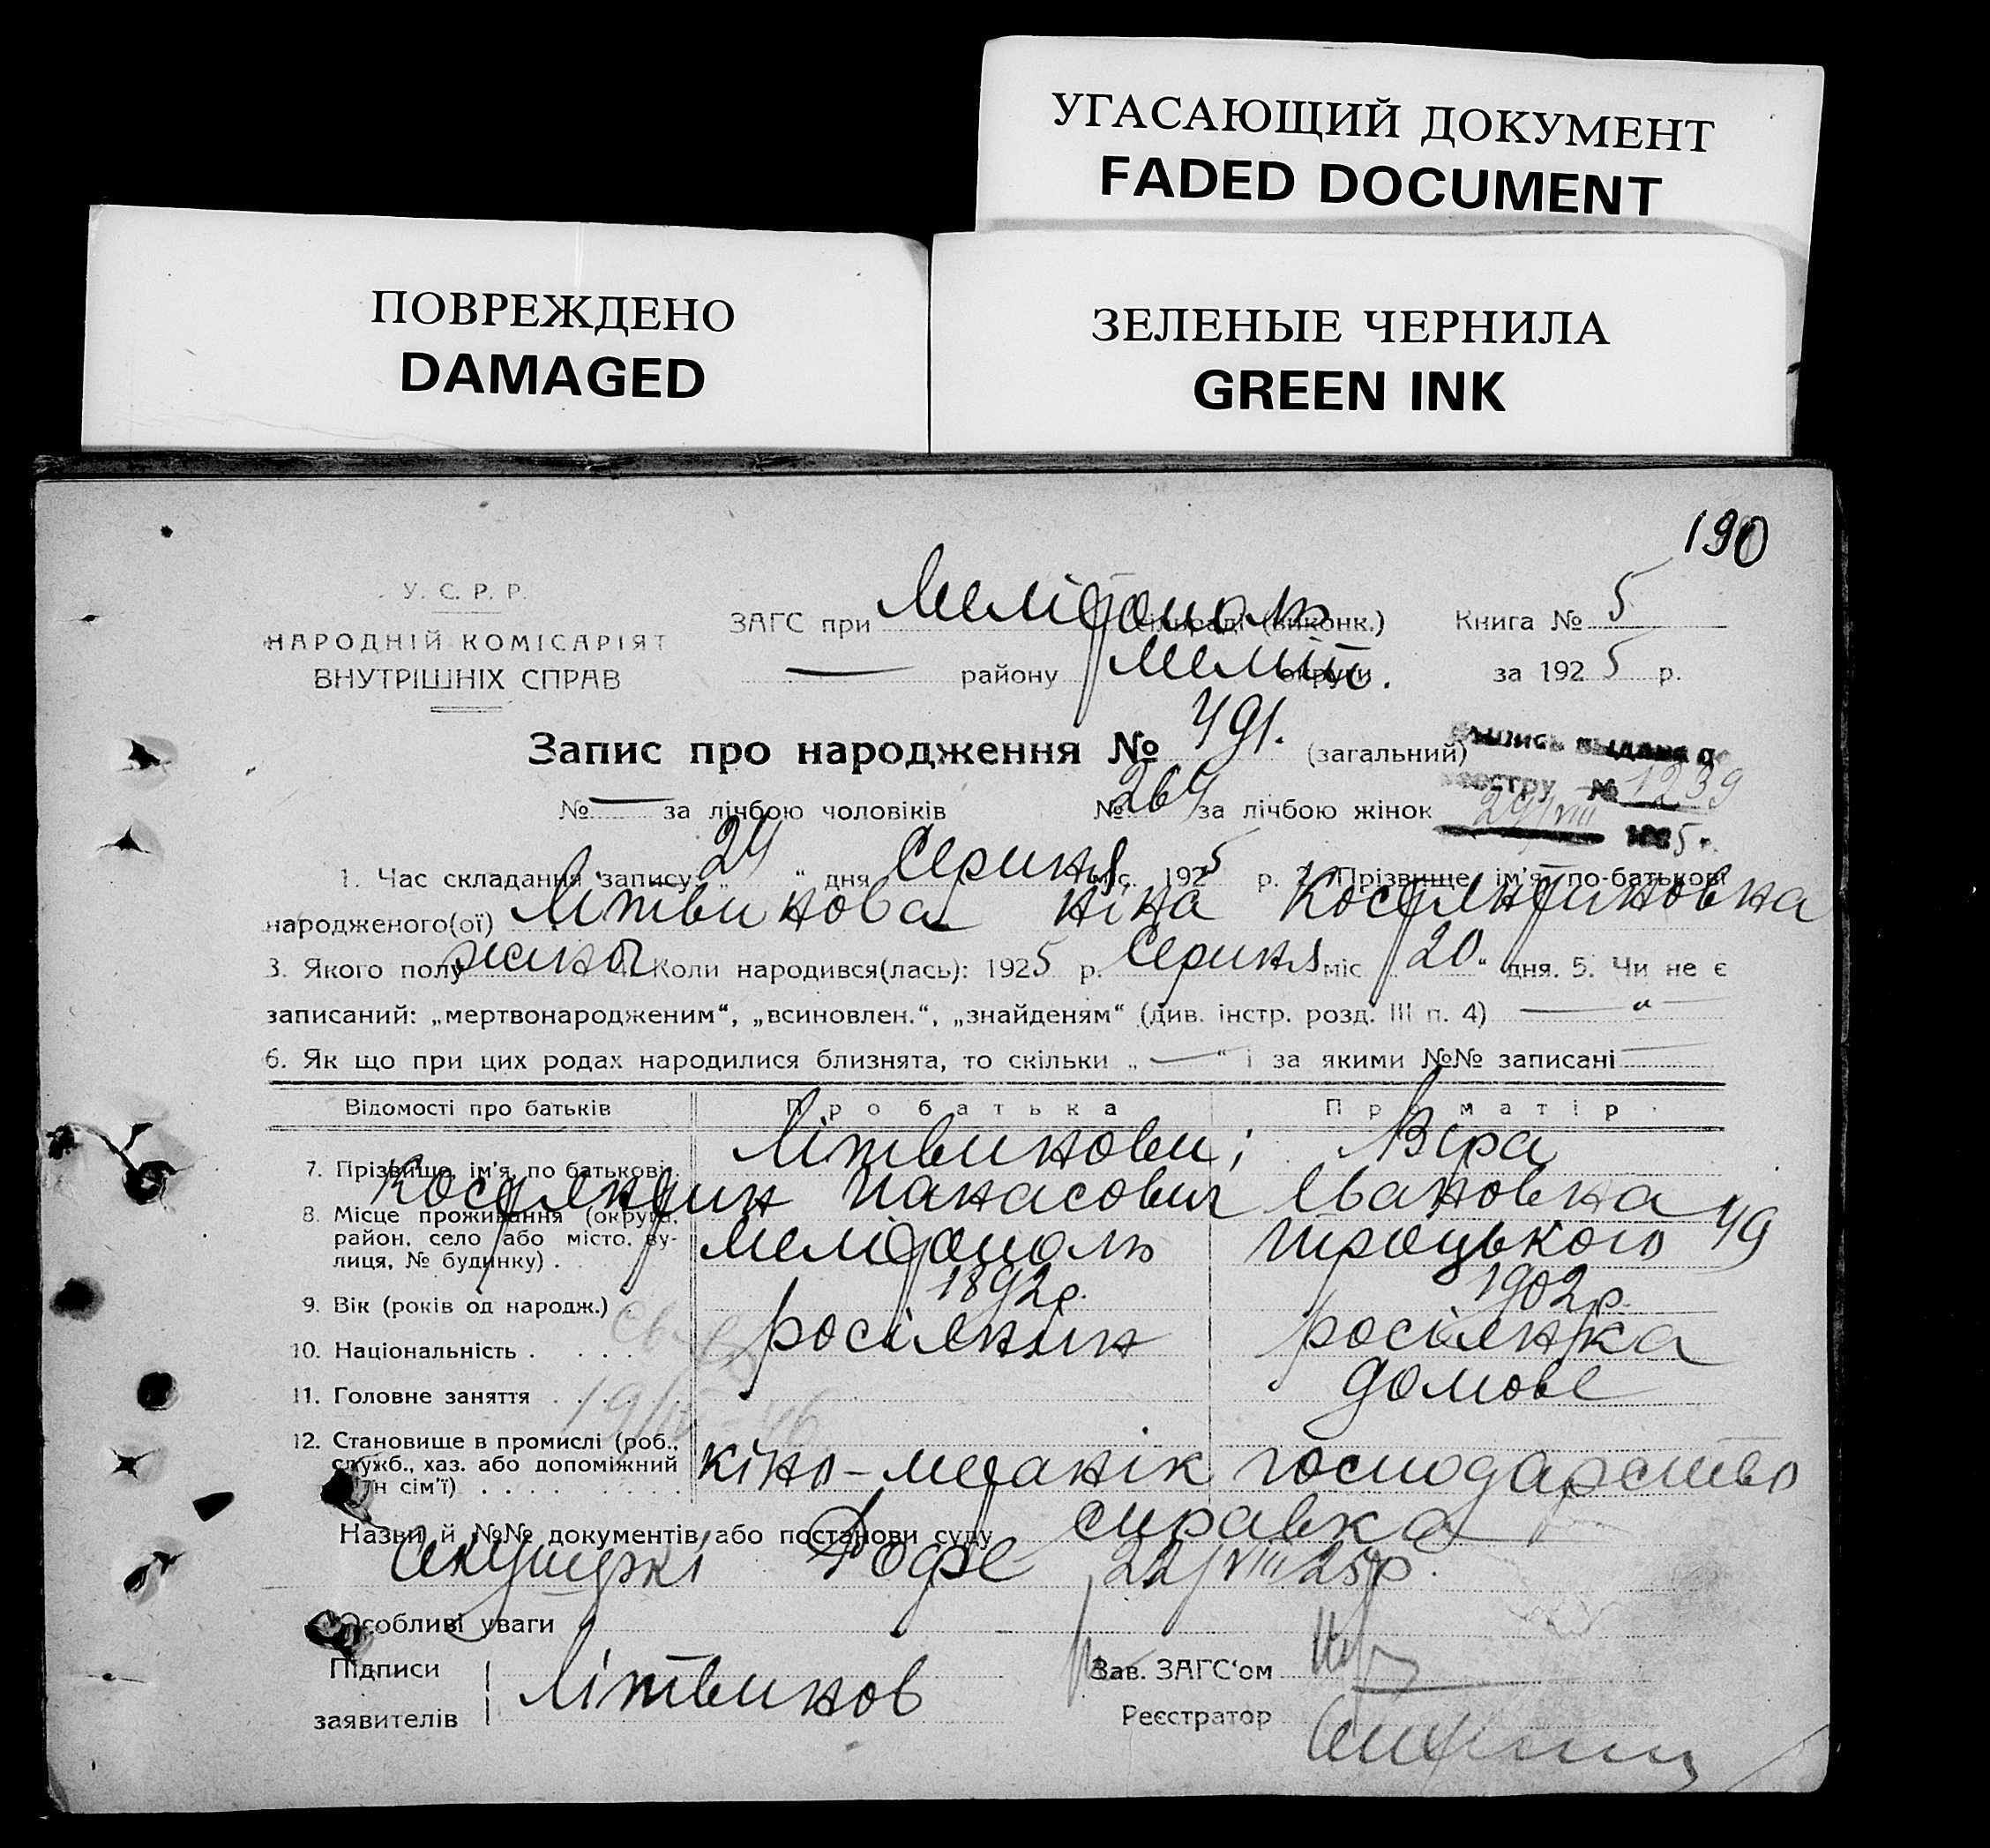 УГАСАЮЩИЙ ДОКУМЕНТ
FADED DOCUMENT
ПОВРЕЖДЕНО
DAMAGED
ЗЕЛЕНЫЕ ЧЕРНИЛА
GREEN INK
190
У. С. Р. Р.
НАРОДНІЙ КОМІСАРІЯТ
ВНУТРІШНІХ СПРАВ
ЗАГС при Мелітополь сільраді (виконк.) Книга № 5
— району Меліт. округи за 1925 р.
Запис про народження № 491. (загальний)
выдана
реестру № 1239
№ — за лічбою чоловіків № 264 за лічбою жінок 24/VIII 1925 г.
1. Час складання запису: „24“ дня Серпня міс. 1925 р. 2. Прізвище, ім'я, по-батькові
народженого(ої) Літвинова Ніна Костянтиновна
3. Якого полу жіноч. 4. Коли народився(лась): 1925 р. Серпня міс „20“ дня. 5. Чи не є
записаний: „мертвонародженим“, „всиновлен.“, „знайденям“ (див. інстр. розд. III п. 4) — „ —
6. Як що при цих родах народилися близнята, то скільки „—“ і за якими №№ записані —
Відомості про батьків Про батька Про матір
7. Прізвище, ім'я, по батькові. Літвинови; Віра
Костянтин Панасович Івановна
8. Місце проживання (округа, район, село або місто, вулиця, № будинку) . Мелітополь Троцького 49
9. Вік (років од народж.) 1892р. 1902р.
10. Національність . . . . росіянин росіянка
11. Головне заняття . . . . . домове
19/IV-46
12. Становище в промислі (роб., служб., хаз. або допоміжний член сім'ї) . . . . кіно-механік господарство
Назви й №№ документів або постанови суду справка
Акушерки 22/VIII 25р.
Особливі уваги
Підписи
заявителів Літвинов
Зав. ЗАГС'ом
Реєстратор